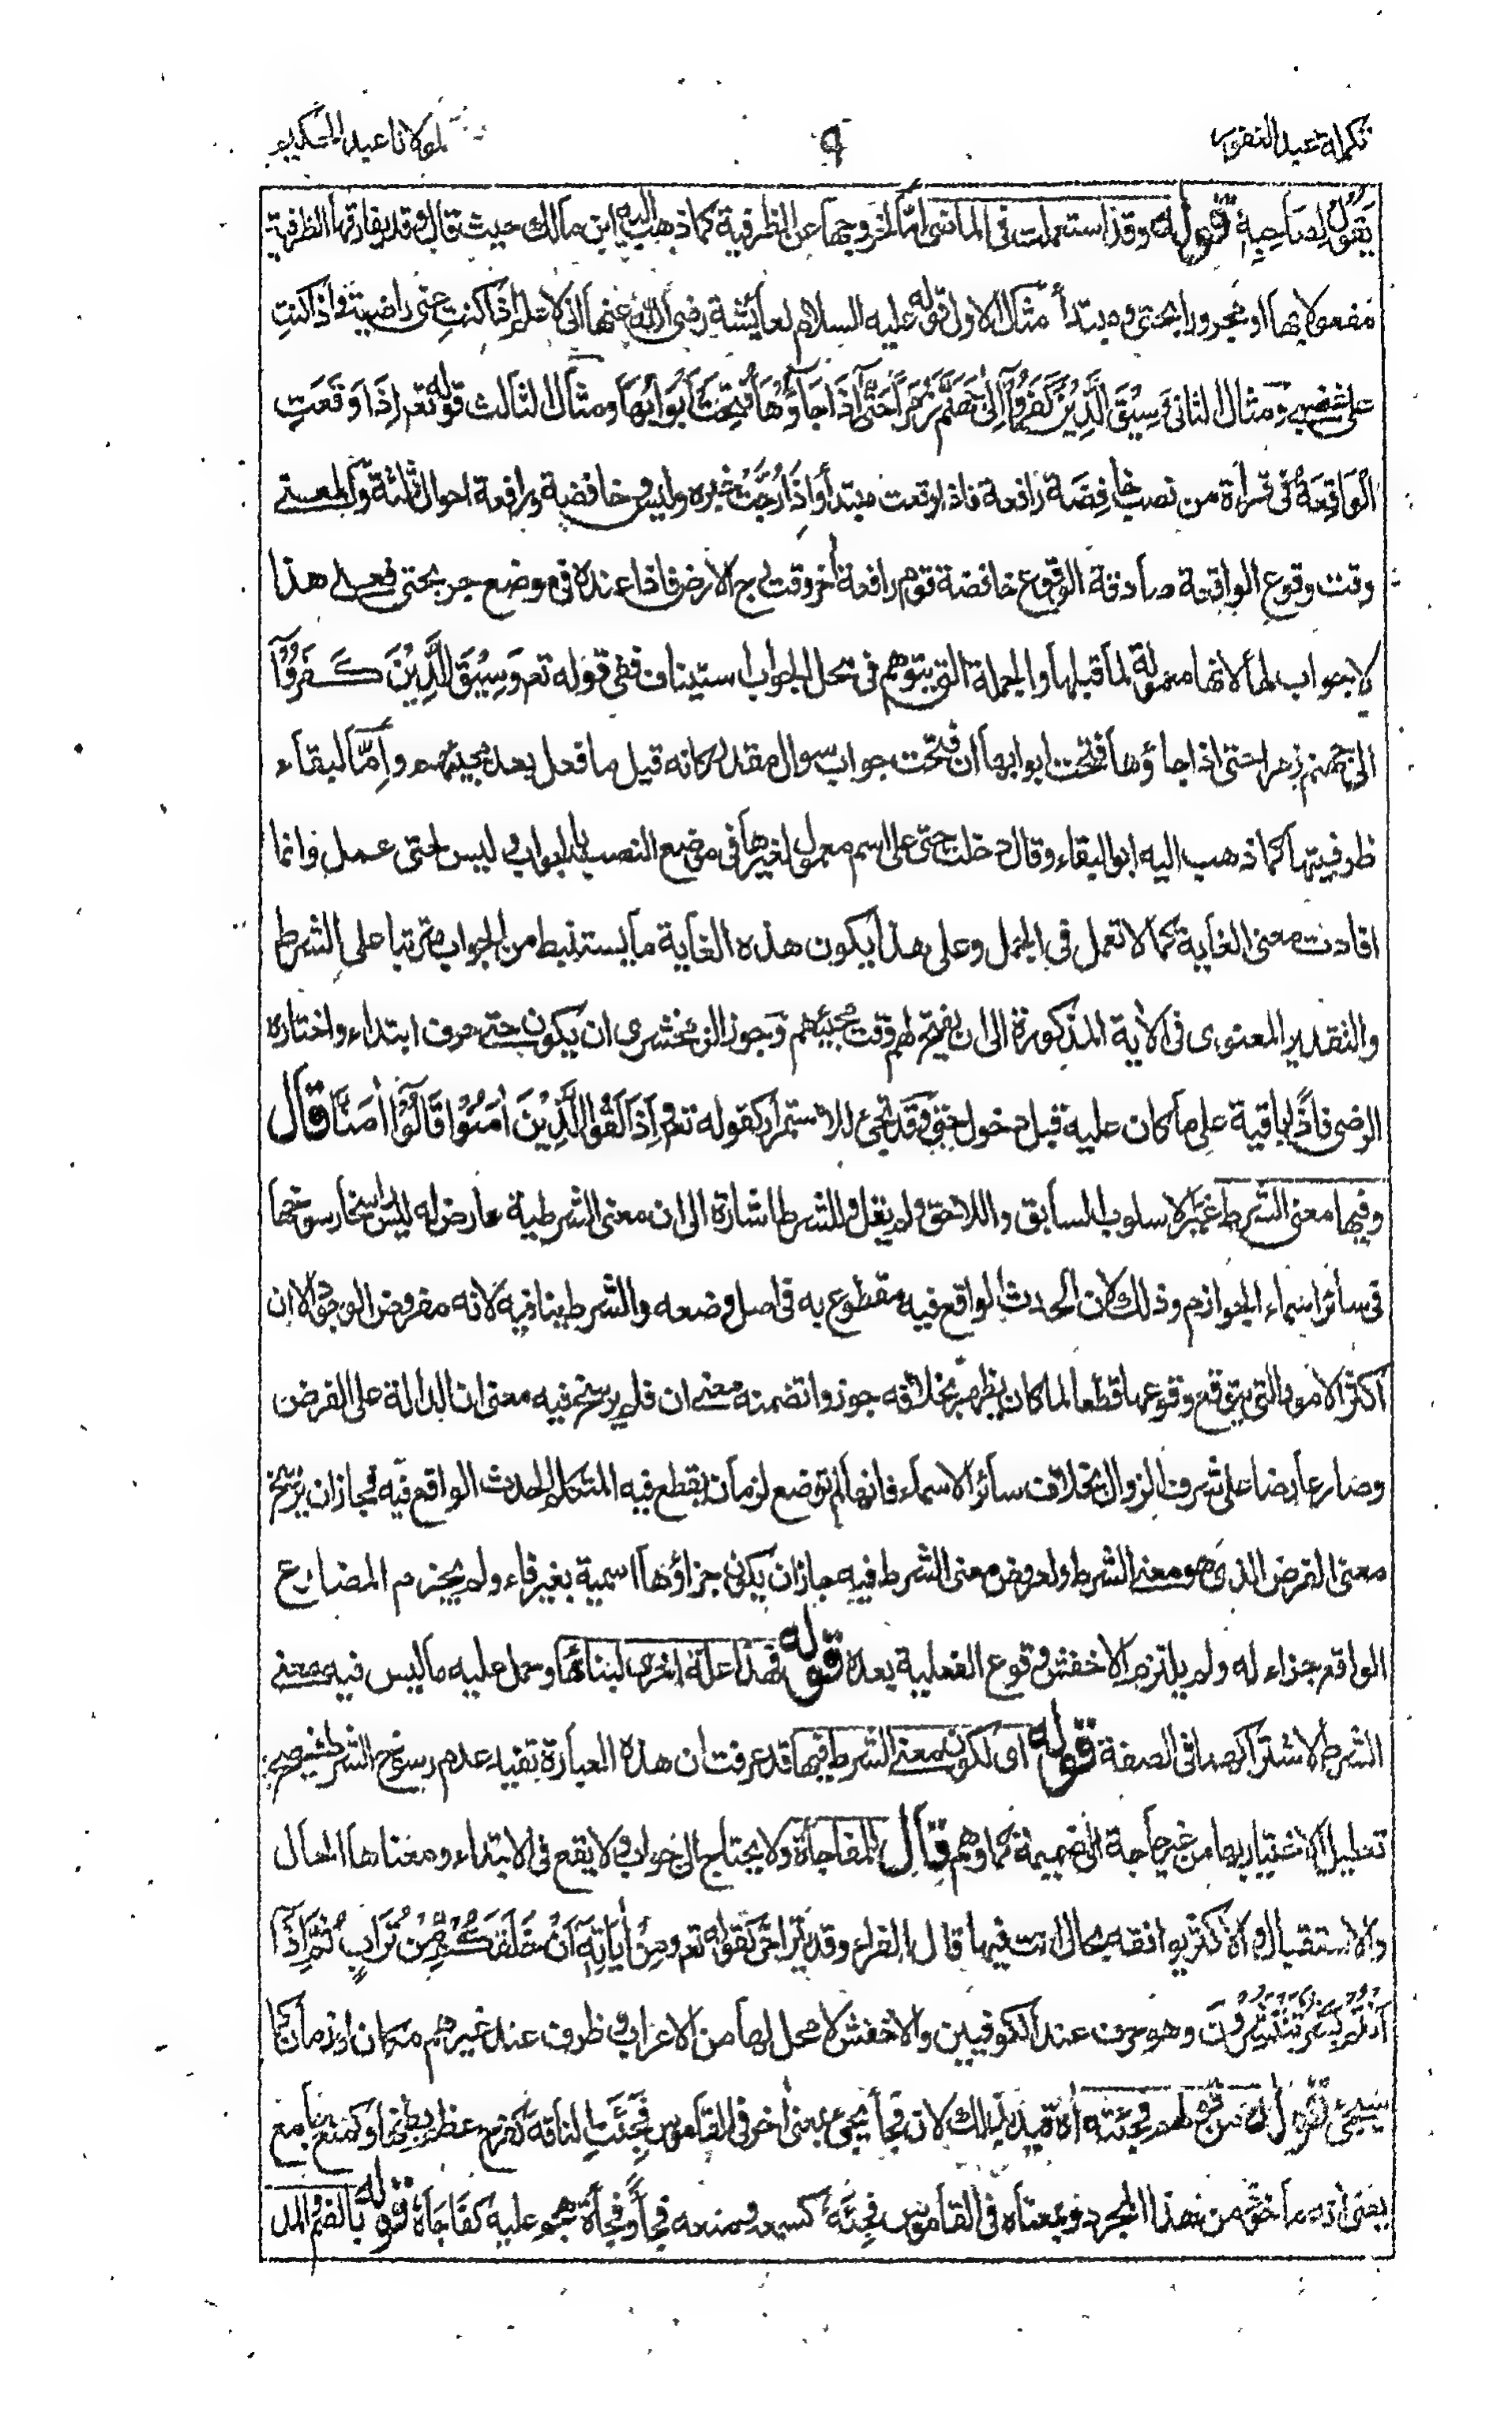 تكملة عبد الغفور
٩
لمولانا عبد الحكيم
يَقُوْلُ لِصَاحِبِهٖ قوله وقد استعملت في الماضي اما لخروجها عن الظرفية كما ذهب اليه ابن مالك حيث قال وقد يفارقها الظرفية
مفعولا بها او مجرورا بحتى او مبتدأ مثال الاول قوله عليه السلام لعائشة رضي الله عنها اني لاعلم اذا كنتِ عني راضية واذا كنتِ
على غضبى ومثال الثاني وَسِيْقَ الَّذِيْنَ كَفَرُوْآ اِلٰى جَهَنَّمَ زُمَرًا حَتّٰى اِذَا جَآؤُهَا فُتِحَتْ اَبْوَابُهَا ومثال الثالث قوله تعم اِذَا وَقَعَتِ
الْوَاقِعَةُ في قراءة من نصب خَافِضَة رافعة فاذا وقعت مبتدأ واِذَا رُجَّتْ خبره وليس و خافضة ورافعة احوال ثلثة والمعنى
وقت وقوع الواقعة صادقة الوقوع خافضة قوم رافعة اخر وقت رج الارض فاذا عنده في موضع جر بحتى فعلى هذا
لا جواب لها لانها معمولة لما قبلها والجملة التي يتوهم في محل الجواب استيناف ففي قوله تعم وَسِيْقَ الَّذِيْنَ كَفَرُوْآ
الى جهنم زمرا حتى اذا جاؤها فتحت ابوابها ان فتحت جواب سوال مقدر كانه قيل ما فعل بعد مجيئهم واِمّا لبقاء
ظرفيتها كما ذهب اليه ابو البقاء وقال دخلت حتى على اسم معمول لغيرها في موضع النصب بالجواب و ليس لحتى عمل وانما
افادت معنى الغاية كما لا تعمل في الجمل وعلى هذا يكون هذه الغاية ما يستنبط من الجواب مترتبا على الشرط
والتقدير المعنوي في الاية المذكورة الى ان يفتح لهم وقت مجيئهم وجوز الزمخشرى ان يكون حتى حرف ابتداء واختاره
الرضي فاذًا باقية على ما كان عليه قبل دخول حتى وقد تجئ للاستمرار كقوله تعم وَاِذَا لَقُوا الَّذِيْنَ اٰمَنُوْا قَالُوْا اٰمَنَّا قال
وفيها معنى الشرط غير الاسلوب السابق واللاحق ولم يقل وللشرط اشارة الى ان معنى الشرطية عارض له ليس راسخا رسوخها
في سائر اسماء الجوازم وذلك لان الحدث الواقع فيه مقطوع به في اصل وضعه والشرط ينافيه لانه مفروض الوجود الا ان
اكثر الامور التي يتوقع وقوعها قطعا لما كان يظهر بخلافه جوزوا تضمنه معنى ان فلم يرسخ فيه معنى ان الدالة على الفرض
وصار عارضا على شرف الزوال بخلاف سائر الاسماء فانها لم توضع لزمان يقطع فيه المتكلم الحدث الواقع فيه فجاز ان يرسخ
معنى الفرض الذي هو معنى الشرط ولعروض معنى الشرط فيه جاز ان يكون جزاؤها اسمية بغير فاء ولم يجزم المضارع
الواقع جزاء له ولم يلتزم الاخفش وقوع الفعلية بعده قوله فهذا علة اخرى لبنائها وحمل عليه ما ليس فيه معنى
الشرط لاشتراكهما في الصفة قوله اى لكون معنى الشرط فيها قد عرفت ان هذه العبارة تفيد عدم رسوخ الشرط فيصح
تعليل الاختيار بها من غير حاجة الى ضميمة كما وهم قال للمفاجأة ولا يحتاج الى جواب و لا يقع في الابتداء ومعناها الحال
والاستقبال و الاكثر يوافقه مكالن انت فيها قال الفراء وقد يتراخى كقوله تعم وَمِنْ اٰيَاتِهٖٓ اَنْ خَلَقَكُمْ مِّنْ تُرَابٍ ثُمَّ اِذَآ
اَنْتُمْ بَشَرٌ تَنْتَشِرُوْنَ وهو حرف عند الكوفيين والاخفش لا محل لها من الاعراب و ظرف عند غيرهم مكان او زمان كما
سيجئ قوله من فجئه اه قيد بذلك لان فجأ يجئ بمعنى اخر في القاموس فَجِئَتِ الناقة كفرح عظم بطنها وكمنع جامع
يعنى انه ماخوذ من هذا المجرد وبمعناه في القاموس فجِئَهُ كسمعه ومنعه فجأ وفجأة هجم عليه كفاجأة قوله بالضم والمد